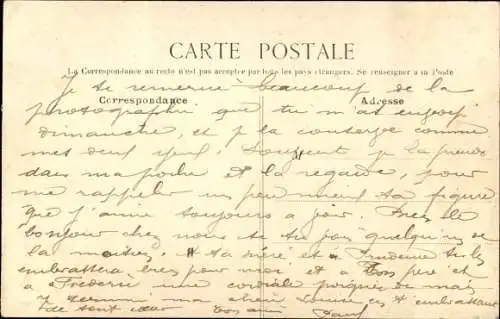 CARTE POSTALE
La Correspondance au recto n'est pas acceptée par tous les pays étrangers. Se renseigner à la Poste
Je te remercie beaucoup de la
Correspondance
Adresse
photographie que tu m'as envoyé
dimanche, et je la conserve comme
mes deux yeux. Souvent je la prends
dans ma poche et la regarde, pour
me rappeler un peu mieux ta figure
que j'aime toujours a
bonjour chez nous si tu vois quelqu'un de
la ta mère et a tu les
embrassera bien pour moi et a ton père et
a une cordiale poignée de main
ma chère Louise en t'embrassant
de tout cœur ton ami